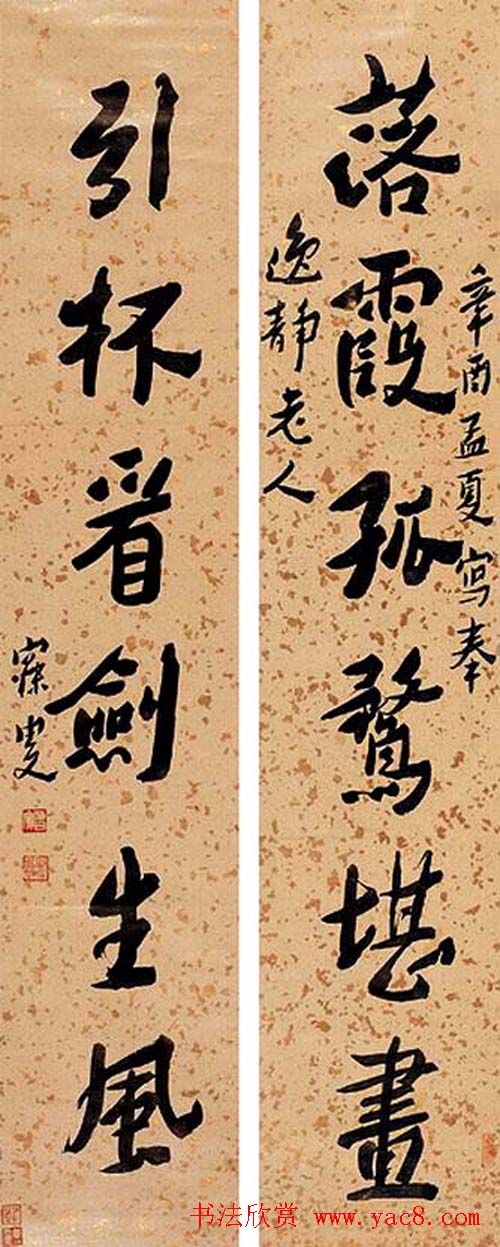 辛酉孟夏寫奉
落霞孤鶩堪畫
逸靜老人
引杯看劍生風
寐叟
书法欣赏 www.yac8.com